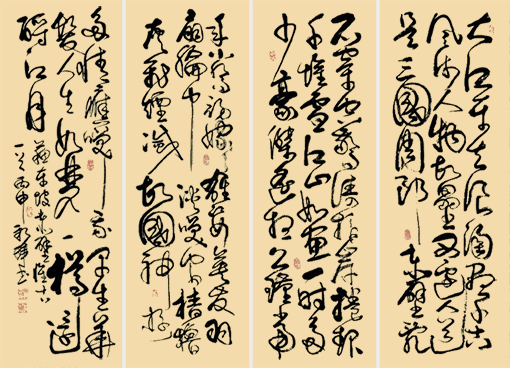 大江东去浪淘尽千古
风流人物故垒西边人道
是三國周郎赤壁乱
石穿空惊涛拍岸捲起
千堆雪江山如画一时多
少豪傑遥想公瑾当
年小喬初嫁了雄姿英发羽
扇纶巾谈笑间樯橹
灰飛煙滅故國神游
多情應笑我早生華
髮人生如梦一樽還
酹江月
苏东坡赤壁怀古
一首丙申